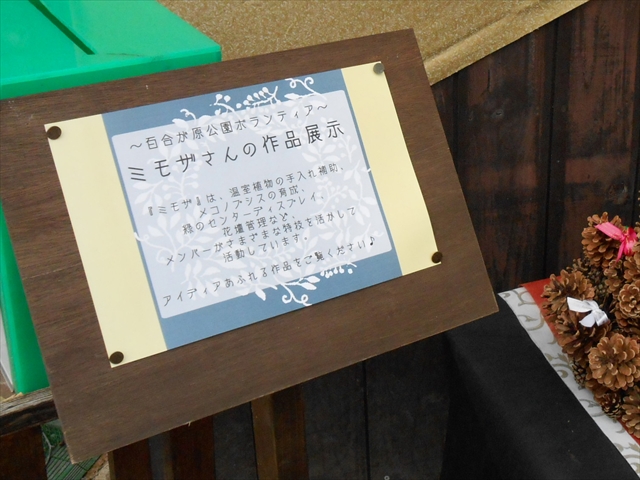 ～百合が原公園ボランティア～
ミモザさんの作品展示
『ミモザ』は、温室植物の手入れ補助、
メコノプシスの育成、
緑のセンターディスプレイ、
花壇管理など、
メンバーがさまざまな特技を活かして
活動しています。
アイディアあふれる作品をご覧ください♪